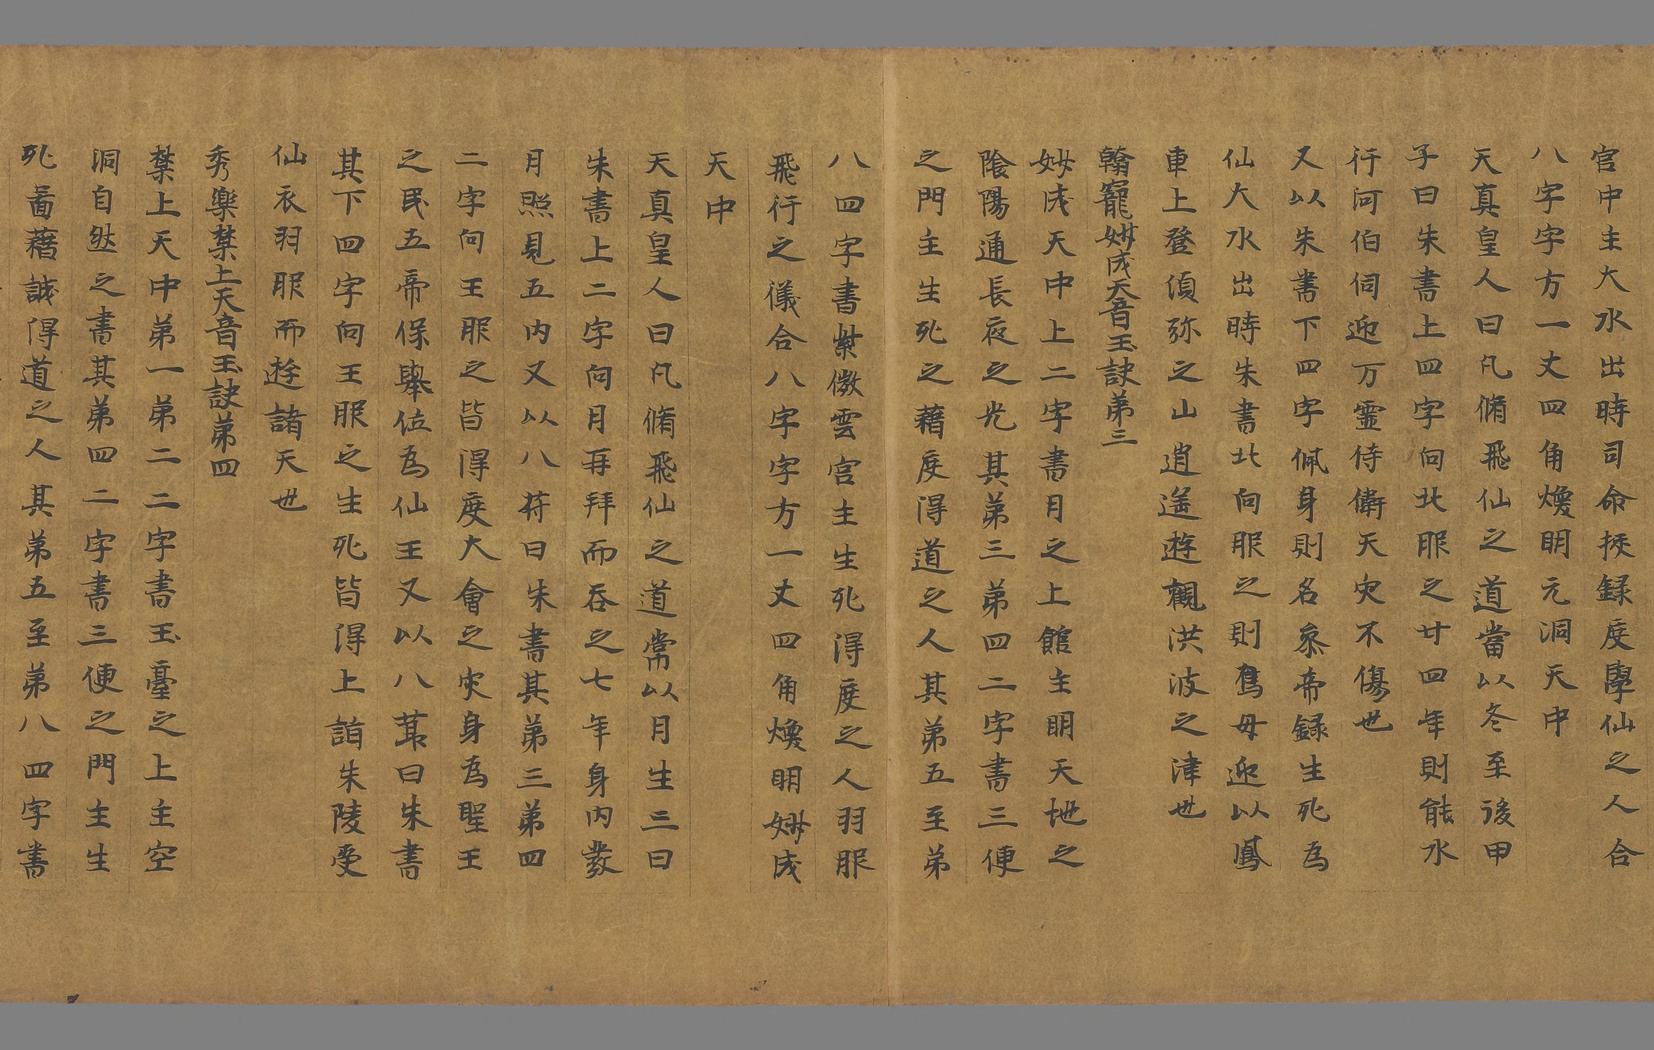 宮中主大水出時司命挍録度學仙之人合
八字字方一丈四角煥明元洞天中
天真皇人曰凡脩飛仙之道當以冬至後甲
子日朱書上四字向北服之廿四年則能水
行河伯伺迎万靈侍衛天灾不傷也
又以朱書下四字佩身則名叅帝録生死為
仙大水出時朱書北向服之則鳥母迎以鳳
車上登須弥之山逍遥遊觀洪波之津也
翰寵妙成天音玉訣弟三
妙成天中上二字書月之上館主明天地之
陰陽通長夜之光其弟三弟四二字書三便
之門主生死之藉度得道之人其弟五至弟
八四字書紫微雲宮主生死得度之人羽服
飛行之儀合八字字方一丈四角煥明妙成
天中
天真皇人曰凡脩飛仙之道常以月生三日
朱書上二字向月再拜而吞之七年身内發
月照見五内又以八節日朱書其弟三弟四
二字向王服之皆得度大會之灾身為聖王
之民五帝保舉位為仙王又以八節日朱書
其下四字向王服之生死皆得上詣朱陵受
仙衣羽服而遊諸天也
秀樂禁上天音玉訣弟四
禁上天中弟一弟二二字書玉臺之上主空
洞自然之書其弟四二字書三便之門主生
死啚藉誠得道之人其弟五至弟八四字書